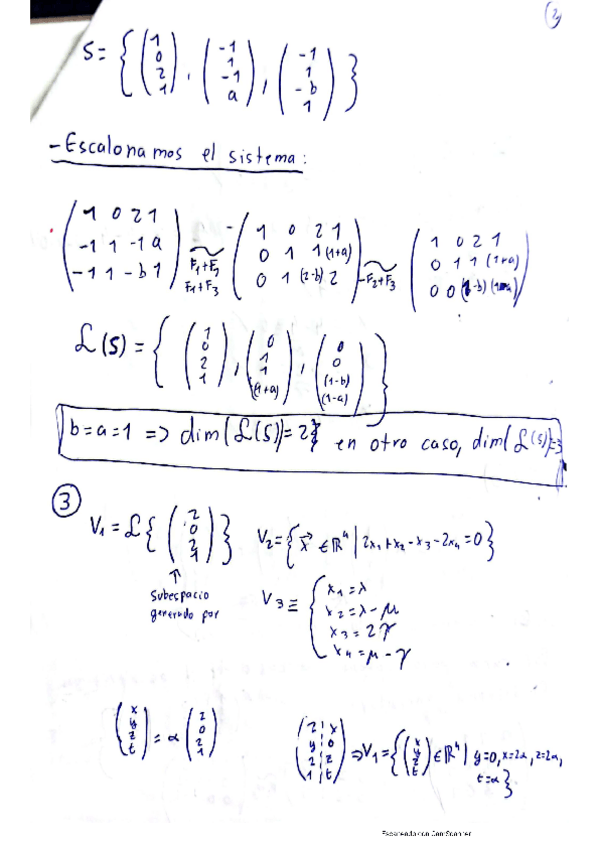 2
S = { (1 0 2 1), (-1 1 -1 a), (-1 1 -b 1) }
- Escalonamos el sistema:
( 1 0 2 1 ; -1 1 -1 a ; -1 1 -b 1 ) ~ F1+F2 F1+F3 ( 1 0 2 1 ; 0 1 1 (1+a) ; 0 1 (2-b) 2 ) ~ -F2+F3 ( 1 0 2 1 ; 0 1 1 (1+a) ; 0 0 (1-b) (1-a) )
L(S) = { (1 0 2 1), (0 1 1 (1+a)), (0 0 (1-b) (1-a)) }
b=a=1 => dim(L(S))=2 en otro caso, dim(L(S))=3
③
V1 = L{ (2 0 2 1) } V2 = { x⃗ ∈ ℝ⁴ | 2x1+x2-x3-2x4=0 }
↑
Subespacio
generado por
V3 ≡ { x1=λ
x2=λ-μ
x3=2γ
x4=μ-γ
(x y z t) = α (2 0 2 1) ( 2 | x ; y | 0 ; 2 | z ; 1 | t ) => V1 = { (x y z t) ∈ ℝ⁴ | y=0, x=2α, z=2α,
t=α }
Escaneado con CamScanner